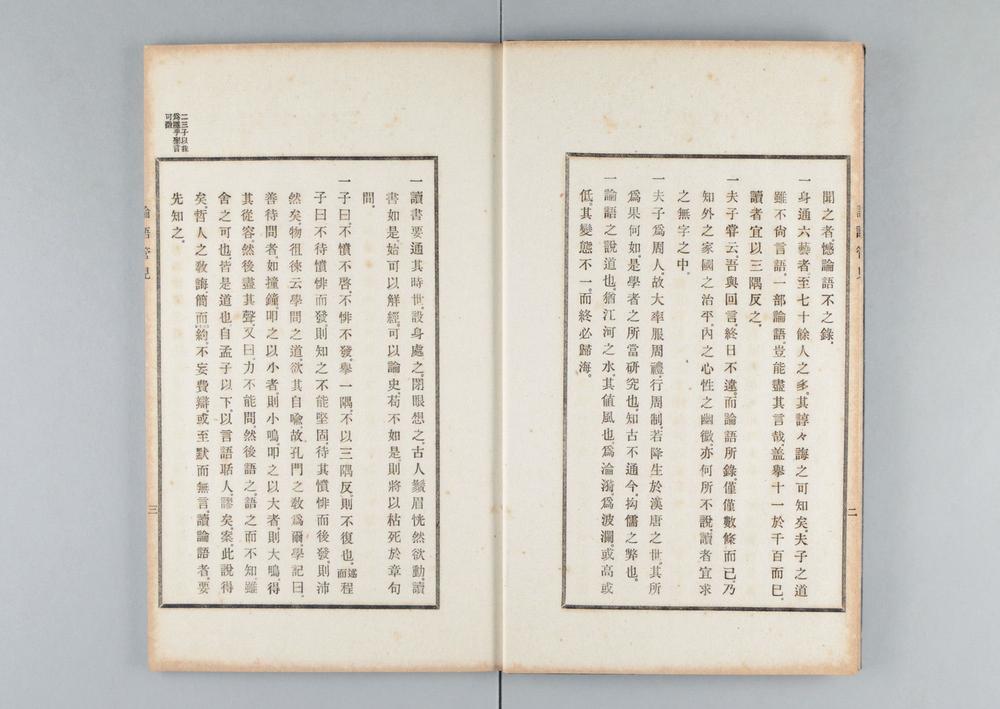 聞之者、憾論語不之錄。
一身通六藝者、至七十餘人之多、其諄々誨之可知矣、夫子之道
雖不尙言語、一部論語、豈能盡其言哉、蓋擧十一於千百而已、
讀者宜以三隅反之。
一夫子嘗云、吾與回言、終日不違、而論語所錄、僅僅數條而已、乃
知外之家國之治平、內之心性之幽微、亦何所不說、讀者宜求
之無字之中。
一夫子爲周人、故大率服周禮、行周制、若降生於漢唐之世、其所
爲果何如、是學者之所當硏究也、知古不通今、拘儒之弊也。
一論語之說道也、猶江河之水、其値風也、爲淪漪、爲波瀾、或高或
低、其變態不一、而終必歸海。
二
論語管見
一讀書要通其時世、設身處之、閉眼想之、古人鬚眉恍然欲動、讀
書如是、始可以解經、可以論史、苟不如是、則將以枯死於章句
間。
一子曰、不憤不啓、不悱不發、擧一隅、不以三隅反、則不復也、述而程
子曰、不待憤悱而發、則知之不能堅固、待其憤悱而後發、則沛
然矣、物徂徠云、學問之道、欲其自喩、故孔門之敎爲爾、學記曰、
善待問者、如撞鐘、叩之以小者則小鳴、叩之以大者、則大鳴、待
其從容、然後盡其聲、又曰、力不能問、然後語之、語之而不知、雖
舍之可也、皆是道也、自孟子以下、以言語聒人、謬矣、案、此說得
矣、哲人之敎誨、簡而約、不妄費辯、或至默而無言、讀論語者、要
先知之。
二三子以我
爲隱乎聖言
可徵
論語管見
三